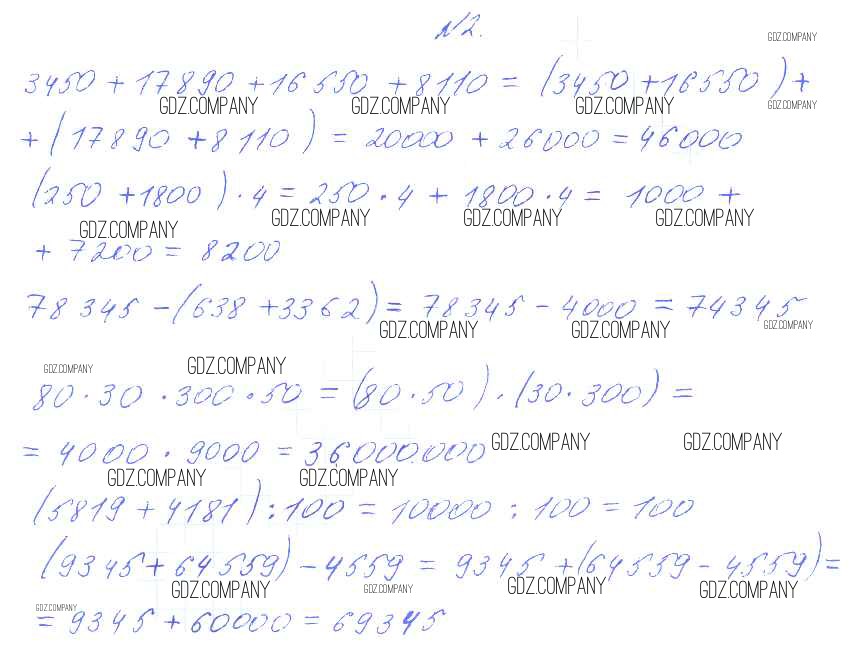 №2.
GDZ.COMPANY
3450 + 17890 + 16550 + 8110 = (3450 + 16550) +
GDZ.COMPANY GDZ.COMPANY GDZ.COMPANY GDZ.COMPANY
+ (17890 + 8110) = 20000 + 26000 = 46000
(250 + 1800) · 4 = 250 · 4 + 1800 · 4 = 1000 +
GDZ.COMPANY GDZ.COMPANY GDZ.COMPANY GDZ.COMPANY
+ 7200 = 8200
78345 - (638 + 3362) = 78345 - 4000 = 74345
GDZ.COMPANY GDZ.COMPANY GDZ.COMPANY
GDZ.COMPANY GDZ.COMPANY
80 · 30 · 300 · 50 = (80 · 50) · (30 · 300) =
= 4000 · 9000 = 36000.000
GDZ.COMPANY GDZ.COMPANY
GDZ.COMPANY GDZ.COMPANY
(5819 + 4181) : 100 = 10000 : 100 = 100
(9345 + 64559) - 4559 = 9345 + (64559 - 4559) =
GDZ.COMPANY GDZ.COMPANY GDZ.COMPANY GDZ.COMPANY
GDZ.COMPANY
= 9345 + 60000 = 69345